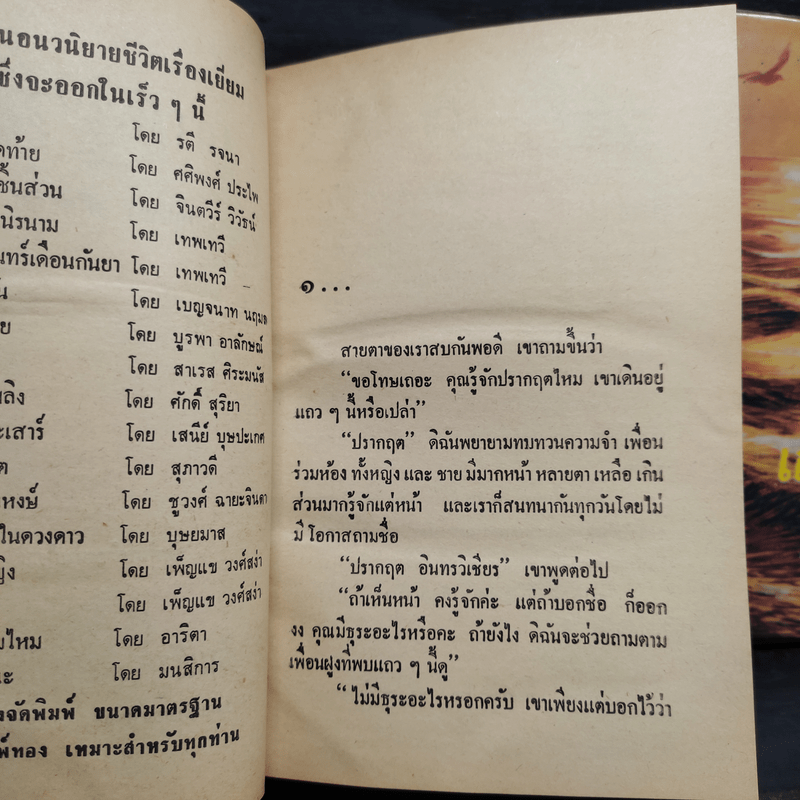 นอนวนิยายชีวิตเรื่องเยี่ยม
ซึ่งจะออกในเร็ว ๆ นี้
โดย รตี รจนา
ท้าย โดย ศศิพงศ์ ประไพ
ชิ้นส่วน โดย จินตวีร์ วิวัธน์
นิรนาม โดย เทพเทวี
นทร์เดือนกันยา โดย เทพเทวี
โดย เบญจนาท นฤมล
ย โดย บูรพา อาลักษณ์
โดย สาเรส ศิระมนัส
ลิง โดย ศักดิ์ สุริยา
ะเสาร์ โดย เสนีย์ บุษปะเกศ
ต โดย สุภาวดี
หงษ์ โดย ชูวงศ์ ฉายะจินดา
ในดวงดาว โดย บุษยมาส
โดย เพ็ญแข วงศ์สง่า
โดย เพ็ญแข วงศ์สง่า
ไหม โดย อาริตา
ะ โดย มนสิการ
จัดพิมพ์ ขนาดมาตรฐาน
พ์ทอง เหมาะสำหรับทุกท่าน
๑...
สายตาของเราสบกันพอดี เขาถามขึ้นว่า
“ขอโทษเถอะ คุณรู้จักปรากฤตไหม เขาเดินอยู่
แถว ๆ นี้หรือเปล่า”
“ปรากฤต” ดิฉันพยายามทบทวนความจำ เพื่อน
ร่วมห้อง ทั้งหญิง และ ชาย มีมากหน้า หลายตา เหลือ เกิน
ส่วนมากรู้จักแต่หน้า และเราก็สนทนากันทุกวันโดยไม่
มี โอกาสถามชื่อ
“ปรากฤต อินทรวิเชียร” เขาพูดต่อไป
“ถ้าเห็นหน้า คงรู้จักค่ะ แต่ถ้าบอกชื่อ ก็ออก
งง คุณมีธุระอะไรหรือคะ ถ้ายังไง ดิฉันจะช่วยถามตาม
เพื่อนฝูงที่พบแถว ๆ นี้ดู”
“ ไม่มีธุระอะไรหรอกครับ เขาเพียงแต่บอกไว้ว่า